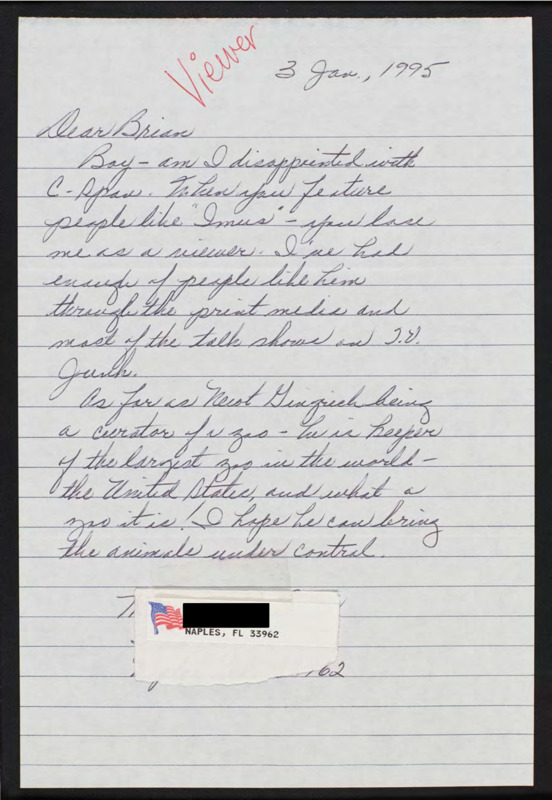 Viewer
3 Jan., 1995
Dear Brian
Boy - am I disappointed with
C-Span. When you feature
people like "Imus" - you lose
me as a viewer. I've had
enough of people like him
through the print media and
most of the talk shows on T.V.
Junk.
As far as Newt Gingrich being
a curator of a zoo - he is keeper
of the largest zoo in the world -
the United States, and what a
zoo it is! I hope he can bring
the animals under control.
NAPLES, FL 33962
62